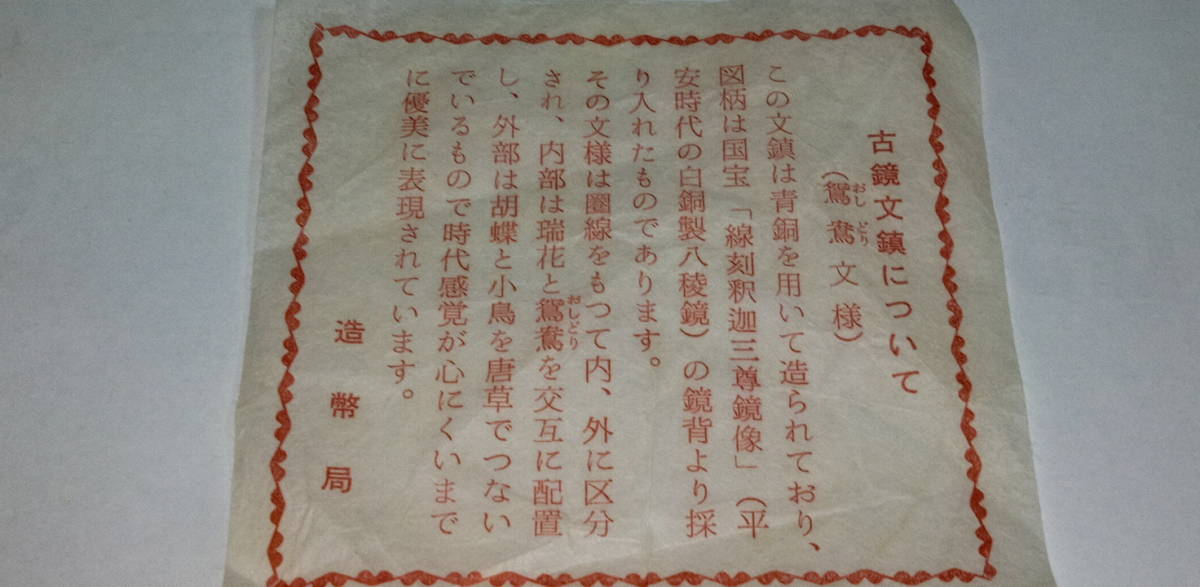 古鏡文鎮について
（鴛鴦文様）
この文鎮は青銅を用いて造られており、
図柄は国宝「線刻釈迦三尊鏡像」（平
安時代の白銅製八稜鏡）の鏡背より採
り入れたものであります。
その文様は圏線をもつて内、外に区分
され、内部は瑞花と鴛鴦を交互に配置
し、外部は胡蝶と小鳥を唐草でつない
でいるもので時代感覚が心にくいまで
に優美に表現されています。
造幣局